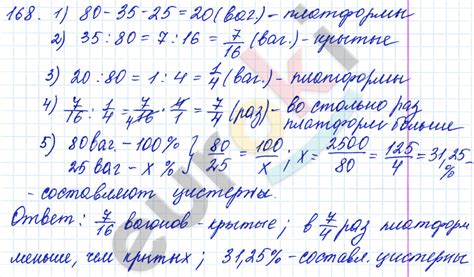 168. 1) 80-35-25=20 (ваг.) - платформы
2) 35:80=7:16=7/16 (ваг.) - крытые
3) 20:80=1:4=1/4 (ваг.) - платформы
4) 7/16:1/4=7/16·4/1=7/4 (раз) - во столько раз
платформ больше
5) 80 ваг - 100% } 80/25=100/x; x=2500/80=125/4=31,25
25 ваг - x % %-
- составляют цистерны.
Ответ: 7/16 вагонов - крытые; в 7/4 раз платформ
меньше, чем крытых; 31,25% - составл. цистерны
euroki